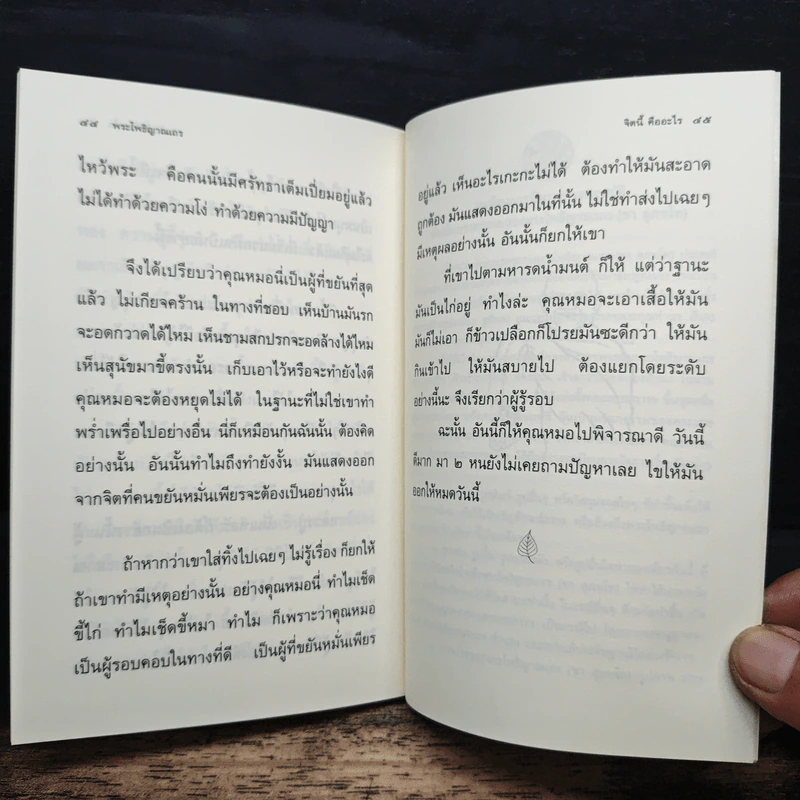 ๔๔ พระโพธิญาณเถร
ไหว้พระ คือคนนั้นมีศรัทธาเต็มเปี่ยมอยู่แล้ว
ไม่ได้ทำด้วยความโง่ ทำด้วยความมีปัญญา
จึงได้เปรียบว่าคุณหมอนี่เป็นผู้ที่ขยันที่สุด
แล้ว ไม่เกียจคร้าน ในทางที่ชอบ เห็นบ้านมันรก
จะอดกวาดได้ไหม เห็นชามสกปรกจะอดล้างได้ไหม
เห็นสุนัขมาขี้ตรงนั้น เก็บเอาไว้หรือจะทำยังไงดี
คุณหมอจะต้องหยุดไม่ได้ ในฐานะที่ไม่ใช่เขาทำ
พร่ำเพรื่อไปอย่างอื่น นี่ก็เหมือนกันฉันนั้น ต้องคิด
อย่างนั้น อันนั้นทำไมถึงทำยังงั้น มันแสดงออก
จากจิตที่คนขยันหมั่นเพียรจะต้องเป็นอย่างนั้น
ถ้าหากว่าเขาใส่ทิ้งไปเฉยๆ ไม่รู้เรื่อง ก็ยกให้
ถ้าเขาทำมีเหตุอย่างนั้น อย่างคุณหมอนี่ ทำไมเช็ด
ขี้ไก่ ทำไมเช็ดขี้หมา ทำไม ก็เพราะว่าคุณหมอ
เป็นผู้รอบคอบในทางที่ดี เป็นผู้ที่ขยันหมั่นเพียร
จิตนี้ คืออะไร ๔๕
อยู่แล้ว เห็นอะไรเกะกะไม่ได้ ต้องทำให้มันสะอาด
ถูกต้อง มันแสดงออกมาในที่นั้น ไม่ใช่ทำส่งไปเฉยๆ
มีเหตุผลอย่างนั้น อันนั้นก็ยกให้เขา
ที่เขาไปตามหารดน้ำมนต์ ก็ให้ แต่ว่าฐานะ
มันเป็นไก่อยู่ ทำไงล่ะ คุณหมอจะเอาเสื้อให้มัน
มันก็ไม่เอา ก็ข้าวเปลือกก็โปรยมันซะดีกว่า ให้มัน
กินเข้าไป ให้มันสบายไป ต้องแยกโดยระดับ
อย่างนี้นะ จึงเรียกว่าผู้รู้รอบ
ฉะนั้น อันนี้ก็ให้คุณหมอไปพิจารณาดี วันนี้
ดีมาก มา ๒ หนยังไม่เคยถามปัญหาเลย ไขให้มัน
ออกให้หมดวันนี้